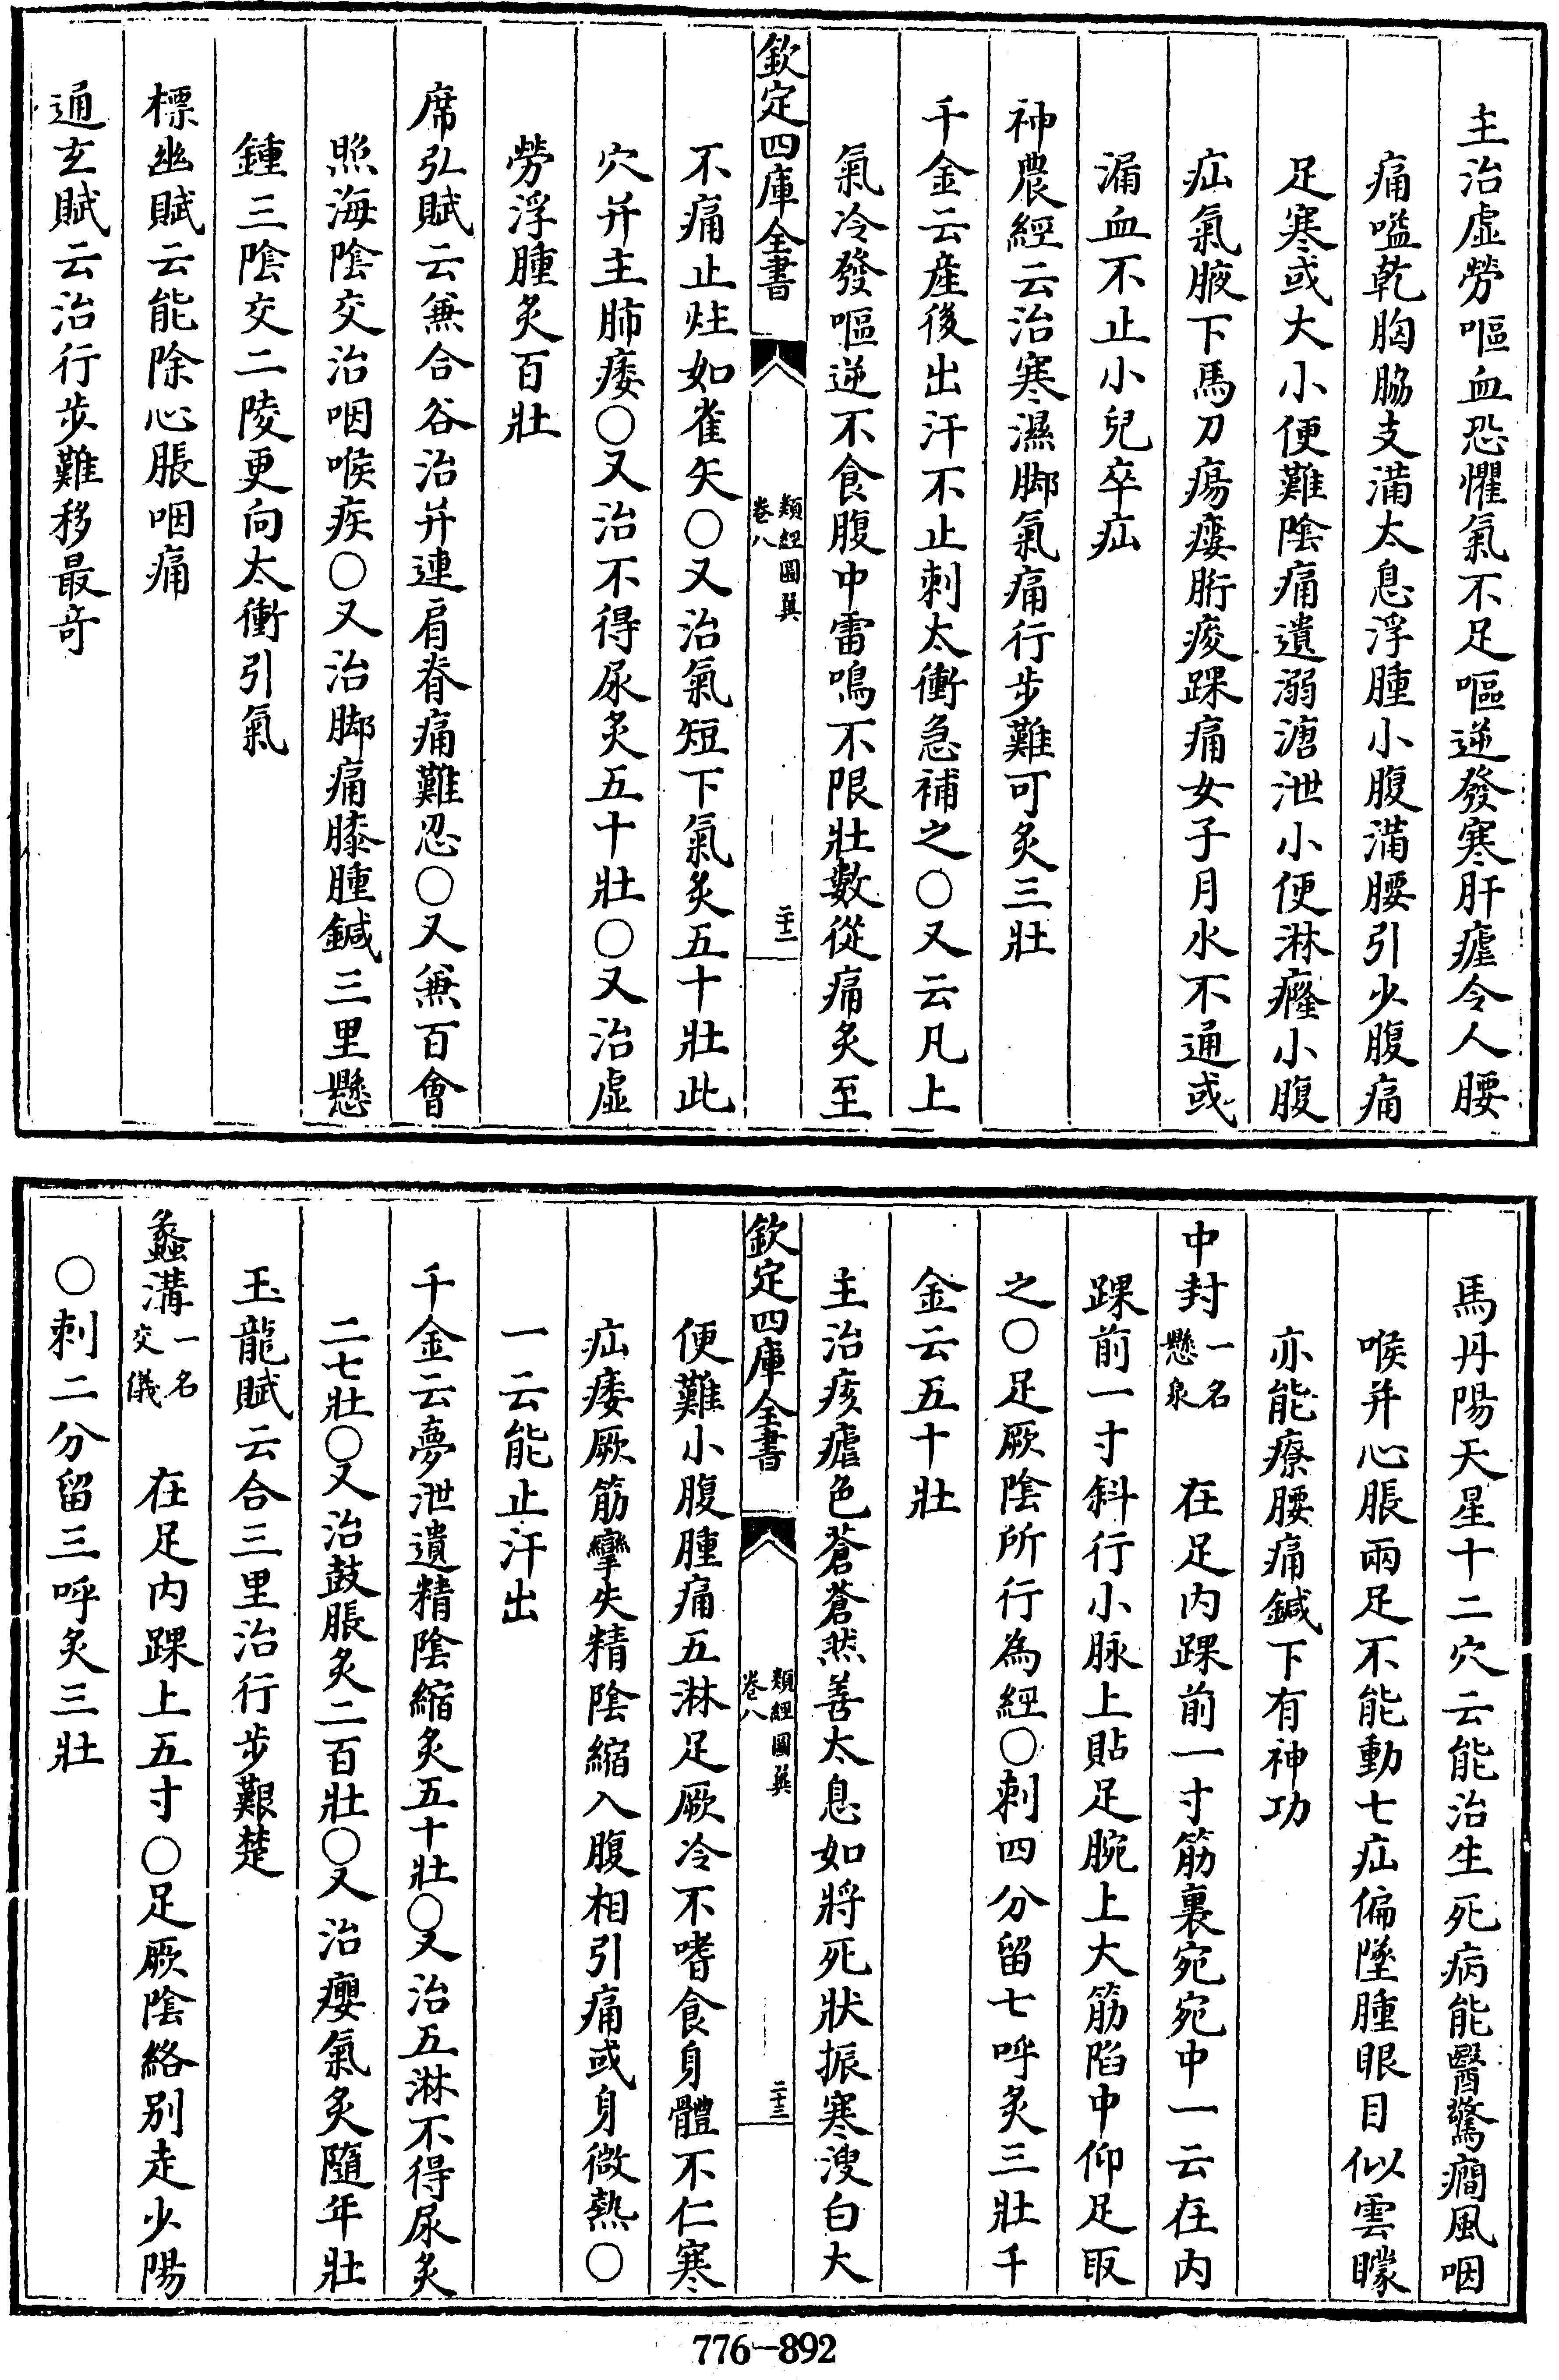 主治虛勞嘔血恐懼氣不足嘔逆發寒肝瘧令人腰
痛嗌乾胸脇支滿太息浮腫小腹滿腰引少腹痛
足寒或大小便難陰痛遺溺溏泄小便淋癃小腹
疝氣腋下馬刀瘍瘻胻痠踝痛女子月水不通或
漏血不止小兒卒疝
神農經云治寒濕脚氣痛行步難可炙三壯
千金云産後出汗不止刺太衝急補之○又云凡上
氣冷發嘔逆不食腹中雷鳴不限壯數從痛炙至
欽定四庫全書
類經圖翼
卷八
二十二
不痛止炷如雀矢○又治氣短下氣炙五十壯此
穴并主肺痿○又治不得尿炙五十壯○又治虛
勞浮腫炙百壯
席弘賦云兼合谷治并連肩脊痛難忍○又兼百會
照海陰交治咽喉疾○又治脚痛膝腫鍼三里懸
鍾三陰交二陵更向太衝引氣
標幽賦云能除心脹咽痛
通玄賦云治行步難移最奇
馬丹陽天星十二穴云能治生死病能醫驚癎風咽
喉并心脹兩足不能動七疝偏墜腫眼目似雲矇
亦能療腰痛鍼下有神功
中封一名懸泉 在足内踝前一寸筋裏宛宛中一云在内
踝前一寸斜行小脉上貼足腕上大筋陷中仰足取
之○足厥陰所行為經○刺四分留七呼炙三壯千
金云五十壯
主治痎瘧色蒼蒼然善太息如將死狀振寒溲白大
欽定四庫全書
類經圖翼
卷八
二十三
便難小腹腫痛五淋足厥冷不嗜食身體不仁寒
疝痿厥筋攣失精陰縮入腹相引痛或身微熱○
一云能止汗出
千金云夢泄遺精陰縮炙五十壯○又治五淋不得尿炙
二七壯○又治鼓脹炙二百壯○又治癭氣炙隨年壯
玉龍賦云合三里治行步艱楚
蠡溝一名交儀 在足内踝上五寸○足厥陰絡別走少陽
○刺二分留三呼炙三壯
776-892